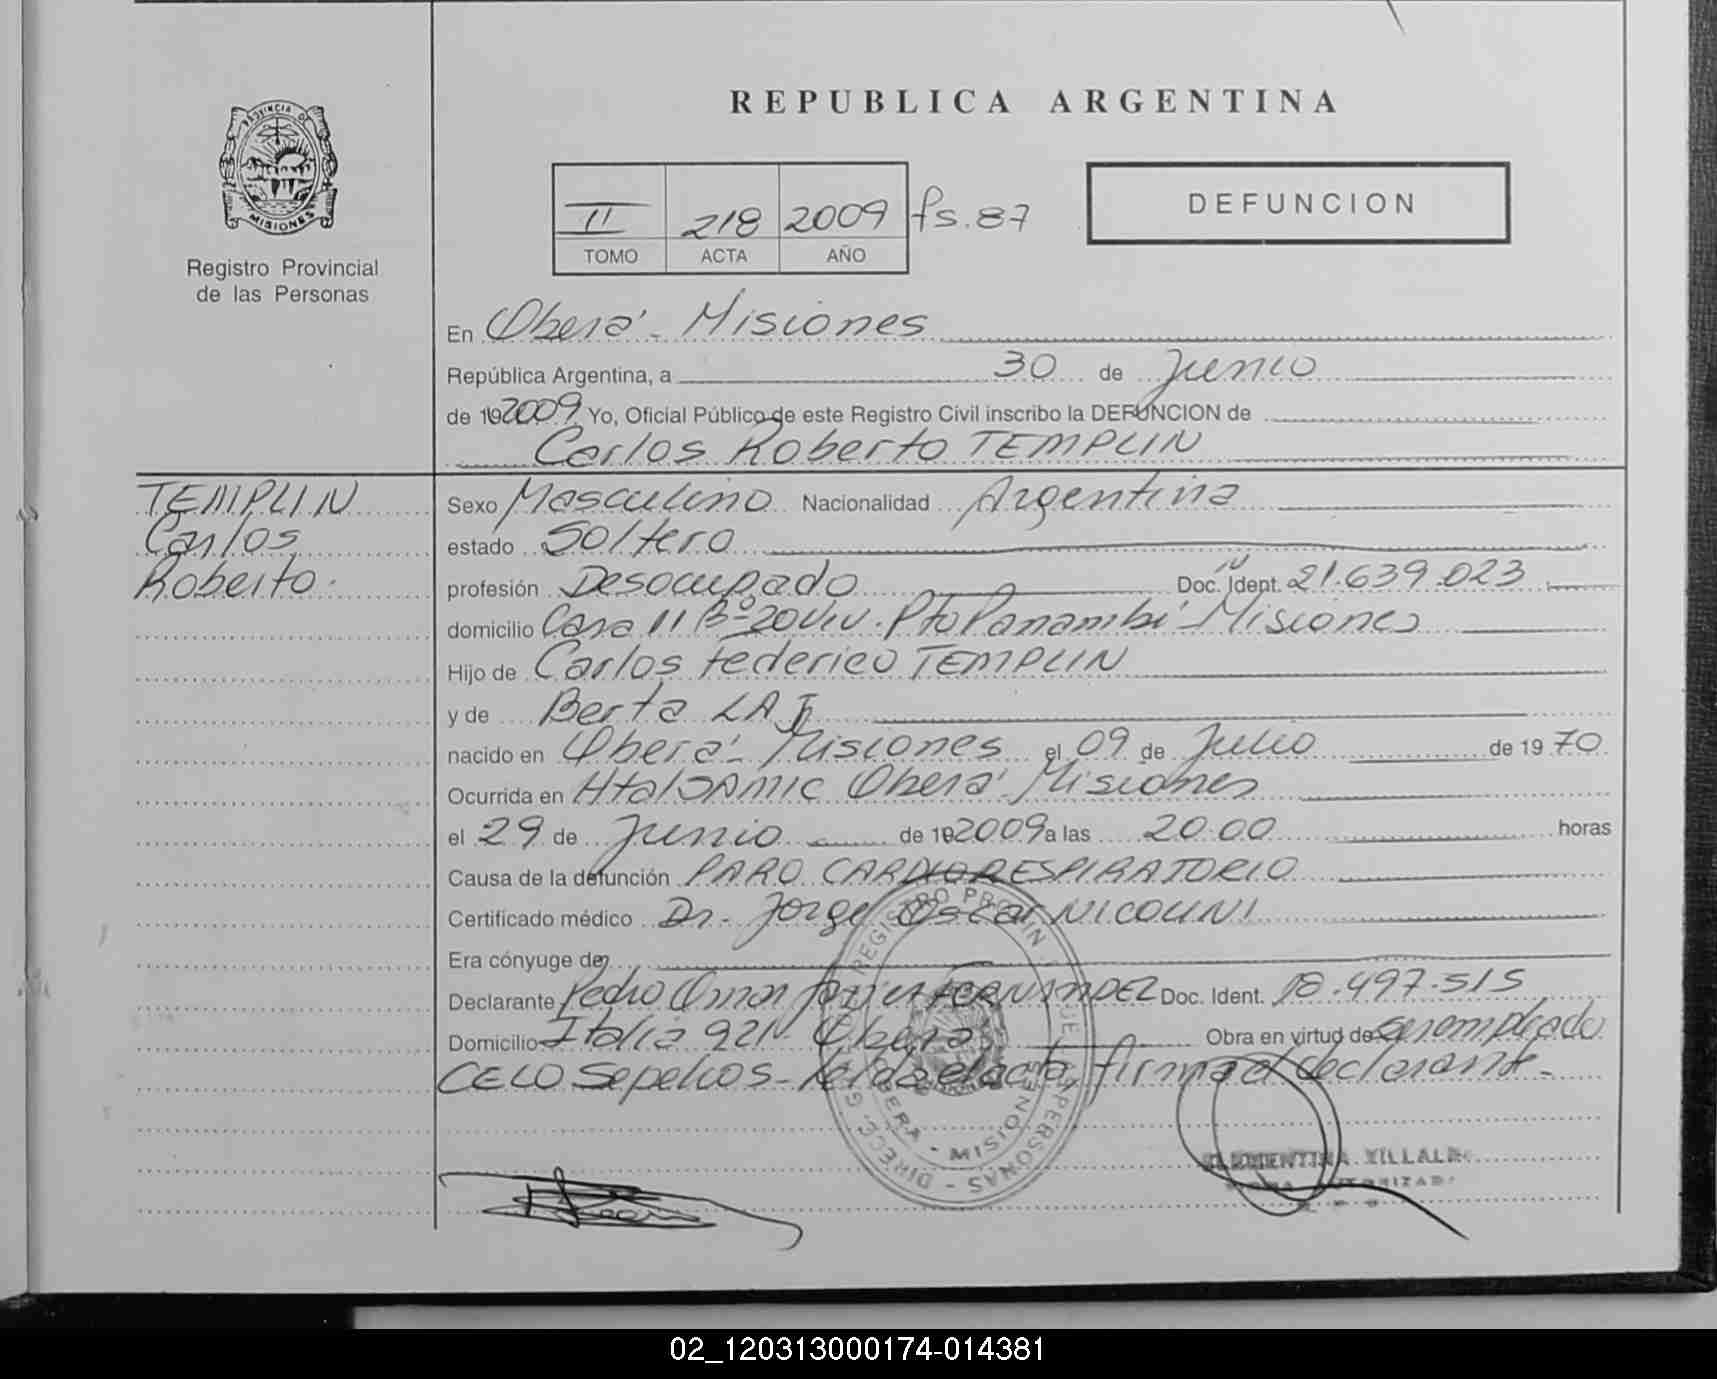 REPUBLICA ARGENTINA
PROVINCIA DE
MISIONES
Registro Provincial
de las Personas
II 218 2009 fs. 87
TOMO ACTA AÑO
DEFUNCION
En Oberá - Misiones
República Argentina, a 30 de Junio
de 19 2009 Yo, Oficial Público de este Registro Civil inscribo la DEFUNCION de
Carlos Roberto TEMPLIN
TEMPLIN
Carlos
Roberto.
Sexo Masculino Nacionalidad Argentina
estado Soltero
profesión Desocupado Doc. Ident. 21.639.023
domicilio Casa 11 Bº 20 Viv. Pto Panambí - Misiones
Hijo de Carlos Federico TEMPLIN
y de Berta
nacido en Oberá - Misiones el 09 de Julio de 19 70
Ocurrida en Htal SAMIC Oberá - Misiones
el 29 de Junio de 19 2009 a las 20:00 horas
Causa de la defunción PARO CARDIORESPIRATORIO
Certificado médico Dr. Jorge Oscar NICOLINI
Era cónyuge de
Declarante Pedro Omar FERNANDEZ Doc. Ident. 18.497.515
Domicilio Italia 921 - Oberá Obra en virtud de ser empleado
CELO Sepelios - leída el acta, firma el declarante -
OBERA - MISIONES
CLEMENTINA
02_120313000174-014381